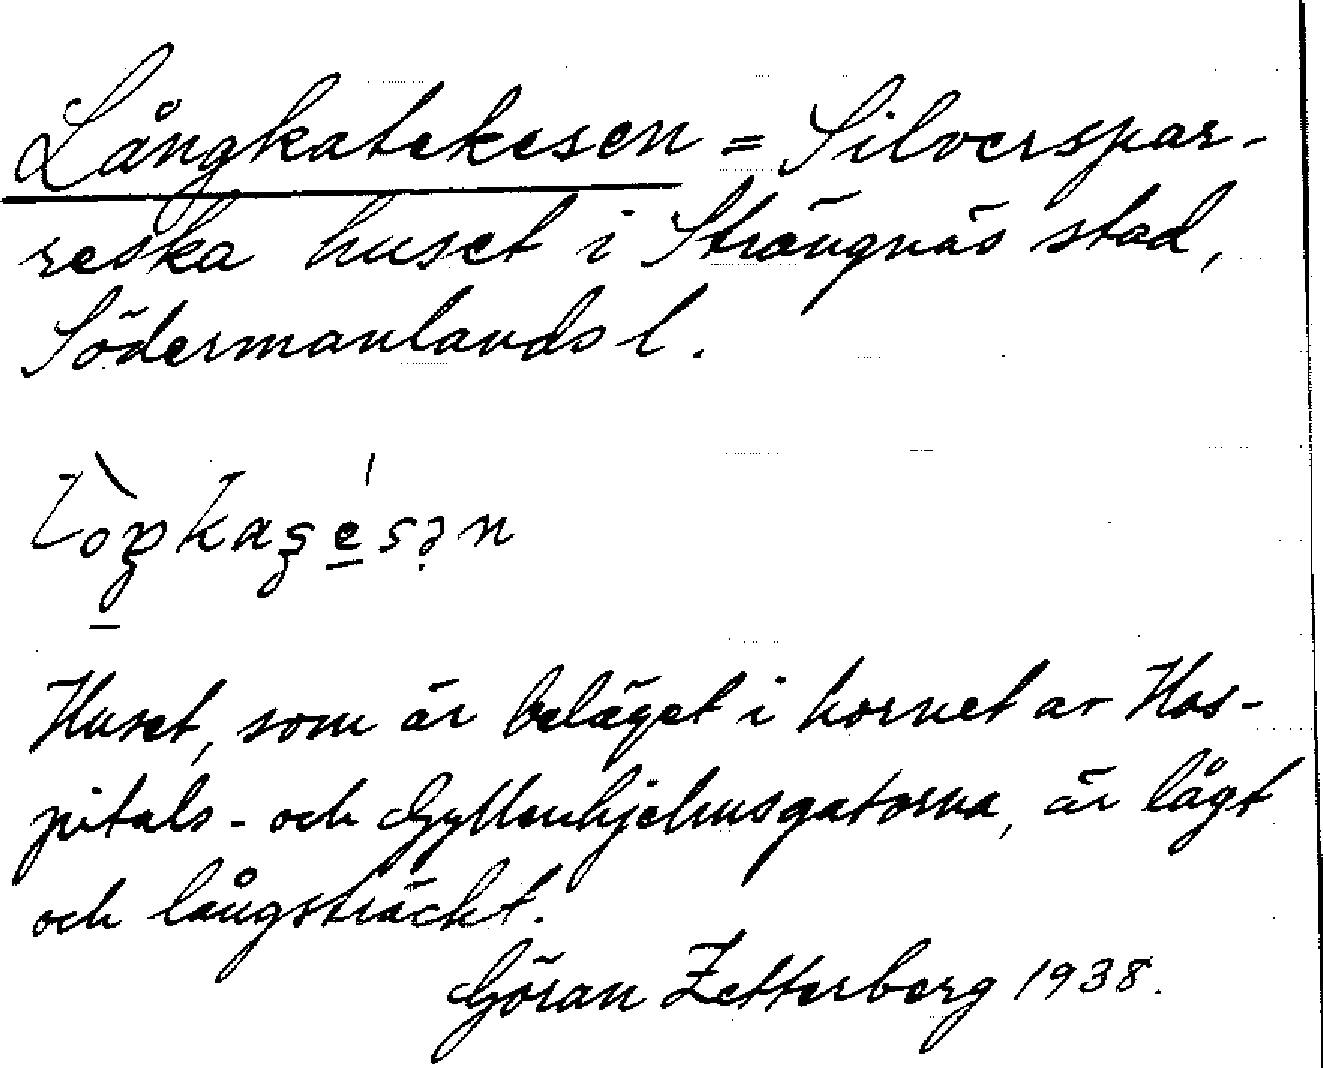 Långkatekesen = Silverspar-
reska huset i Strängnäs stad,
Södermanlands l.
Huset, som är beläget i hörnet av Hos-
pitals- och Gyllenhjelmsgatorna, är lågt
och långsträckt.
Göran Zetterberg 1938.